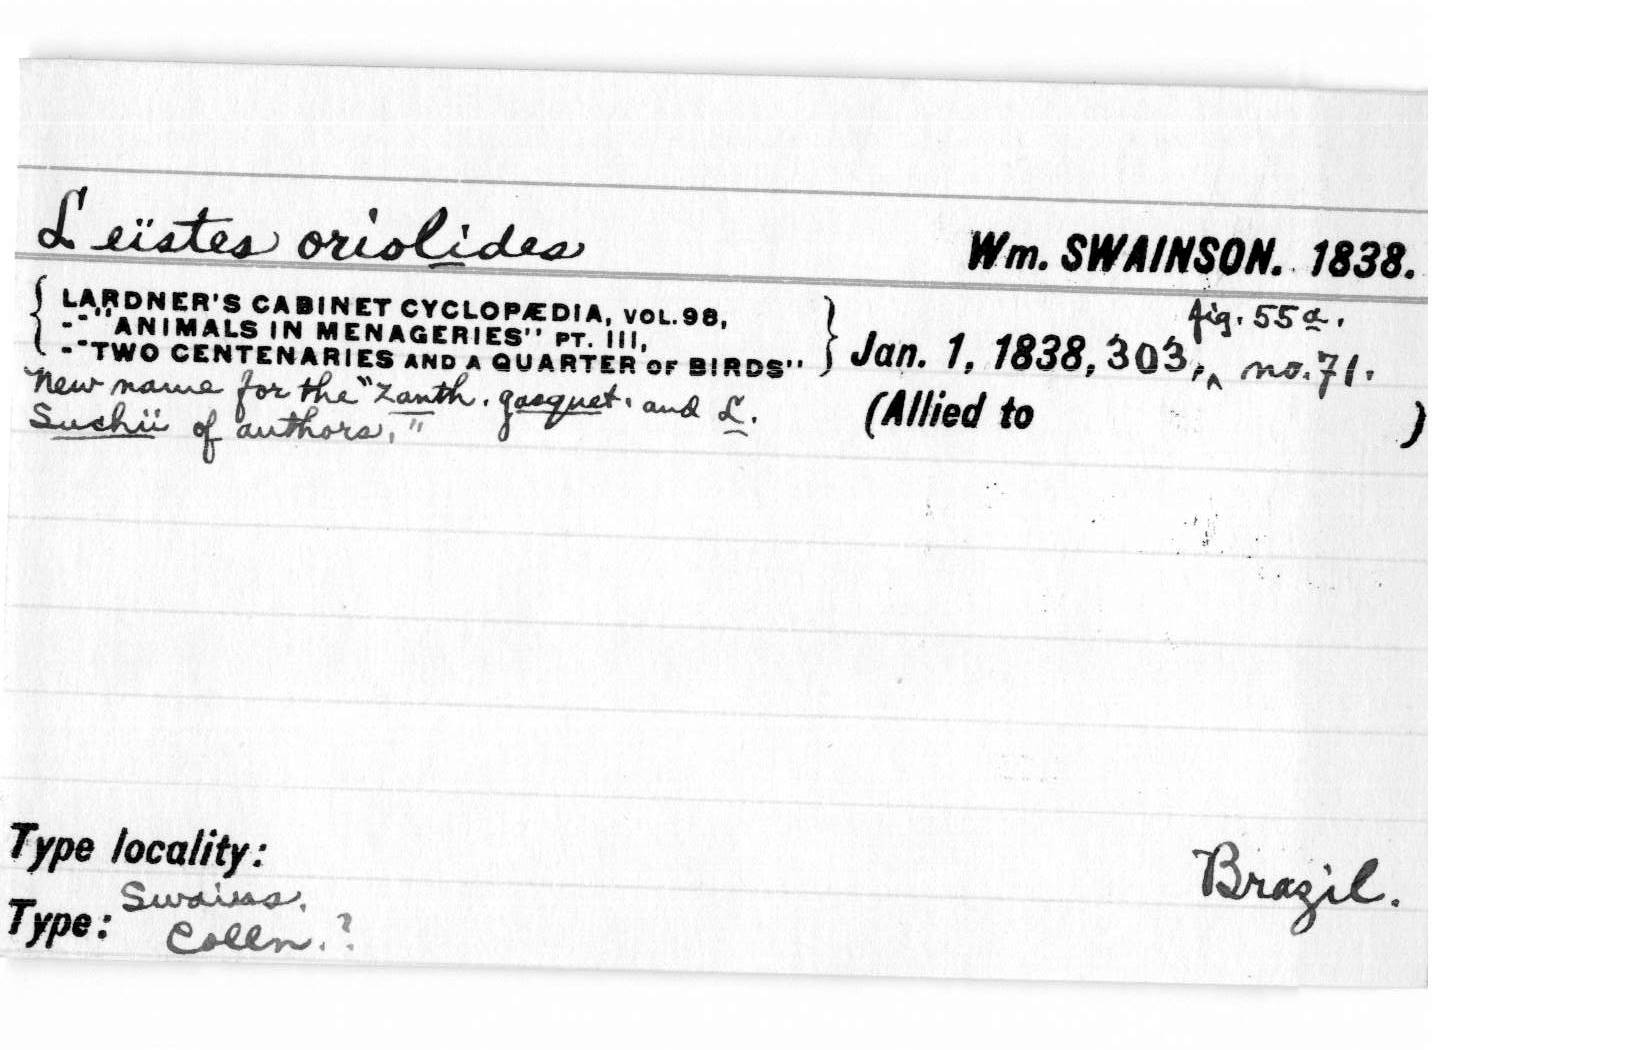 Leïstes oriolides Wm. SWAINSON. 1838.
LARDNER'S CABINET CYCLOPÆDIA, VOL. 98,
--"ANIMALS IN MENAGERIES" PT. III,
--"TWO CENTENARIES AND A QUARTER OF BIRDS"
Jan. 1, 1838, 303, fig. 55a. no. 71.
New name for the "Zanth. gasquet. and L.
Suchii of authors," (Allied to )
Type locality: Brazil.
Type: Swains.
Colln. ?